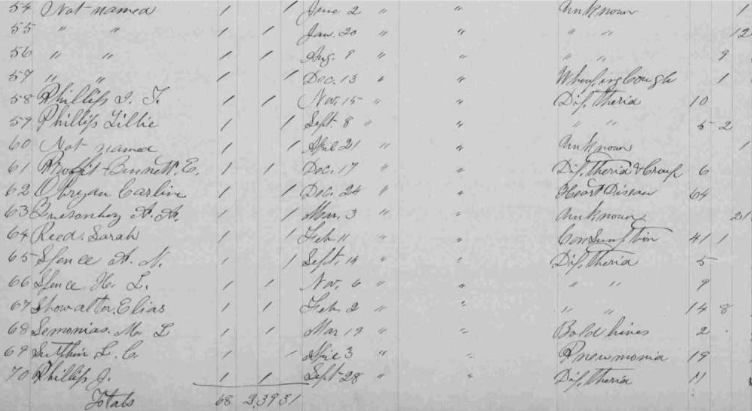 54 Not named 1 1 June 2 " " Unknown 1
55 " " 1 1 Jan. 20 " " " " 12
56 " " 1 1 Aug. 9 " " " " 9
57 " " 1 1 Dec. 13 " " Whooping Cough 1
58 Phillips J. T. 1 1 Nov. 15 " " Diptheria 10
59 Phillips Lillie 1 1 Sept. 8 " " " " 5 2
60 Not named 1 1 April 21 " " Unknown 1
61 Bennett E. 1 1 Dec. 17 " " Diptheria & Croup 6
62 Obryan Carline 1 1 Dec. 24 " " Heart Disease 64
63 A. A. 1 1 Mar. 3 " " Unknown 21
64 Reed Sarah 1 1 Feb. 11 " " Consumption 41 1
65 Spence A. N. 1 1 Sept. 14 " " Diptheria 5
66 Spence H. L. 1 1 Nov. 6 " " " " 9
67 Showalter Elias 1 1 Feb. 2 " " " " 14 8
68 Semonias M. L 1 1 Mar 19 " " Bold hives 2
69 L. C. 1 1 3 " " Pneumonia 19
70 Phillips J. 1 1 Sept. 28 " " Diptheria 11
Totals 68 2 39 31